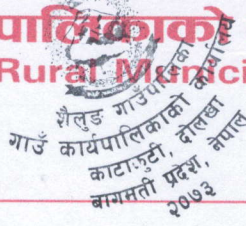 पालिकाको
Rural Munici
शैलुङ गाउँपालिका
गाउँ कार्यपालिकाको कार्यालय
काटाकुटी, दोलखा
बागमती प्रदेश, नेपाल
२०७३